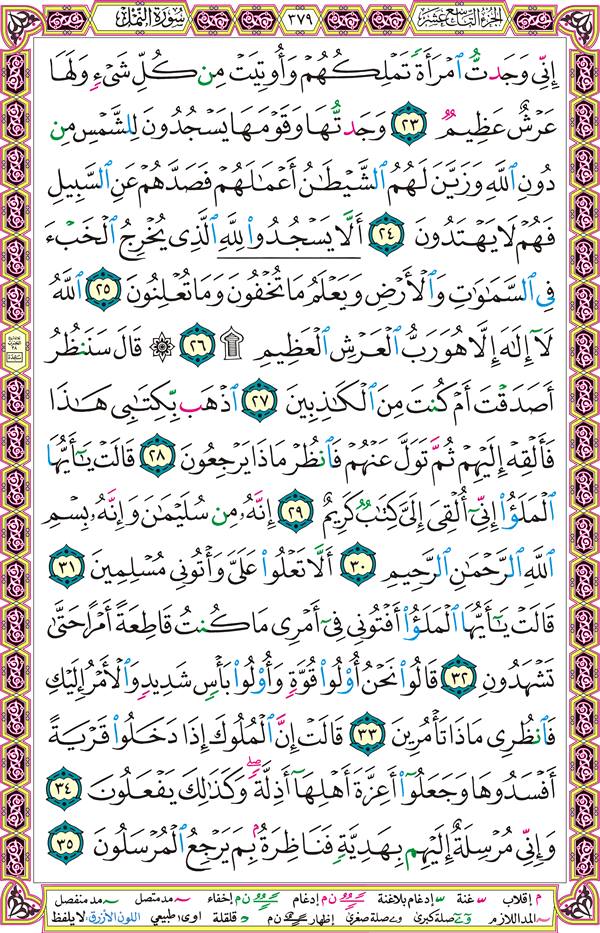 الجزء التاسع عشر ٣٧٩ سورة النمل
إِنِّي وَجَدتُّ ٱمْرَأَةً تَمْلِكُهُمْ وَأُوتِيَتْ مِن كُلِّ شَيْءٍ وَلَهَا
عَرْشٌ عَظِيمٌ ٢٣ وَجَدتُّهَا وَقَوْمَهَا يَسْجُدُونَ لِلشَّمْسِ مِن
دُونِ ٱللَّهِ وَزَيَّنَ لَهُمُ ٱلشَّيْطَٰنُ أَعْمَٰلَهُمْ فَصَدَّهُمْ عَنِ ٱلسَّبِيلِ
فَهُمْ لَا يَهْتَدُونَ ٢٤ أَلَّا يَسْجُدُوا۟ لِلَّهِ ٱلَّذِي يُخْرِجُ ٱلْخَبْءَ
فِي ٱلسَّمَٰوَٰتِ وَٱلْأَرْضِ وَيَعْلَمُ مَا تُخْفُونَ وَمَا تُعْلِنُونَ ٢٥ ٱللَّهُ
لَآ إِلَٰهَ إِلَّا هُوَ رَبُّ ٱلْعَرْشِ ٱلْعَظِيمِ ۩ ٢٦ ۞ قَالَ سَنَنظُرُ
أَصَدَقْتَ أَمْ كُنتَ مِنَ ٱلْكَٰذِبِينَ ٢٧ ٱذْهَب بِّكِتَٰبِي هَٰذَا
فَأَلْقِهْ إِلَيْهِمْ ثُمَّ تَوَلَّ عَنْهُمْ فَٱنظُرْ مَاذَا يَرْجِعُونَ ٢٨ قَالَتْ يَٰٓأَيُّهَا
ٱلْمَلَؤُا۟ إِنِّيٓ أُلْقِيَ إِلَيَّ كِتَٰبٌ كَرِيمٌ ٢٩ إِنَّهُۥ مِن سُلَيْمَٰنَ وَإِنَّهُۥ بِسْمِ
ٱللَّهِ ٱلرَّحْمَٰنِ ٱلرَّحِيمِ ٣٠ أَلَّا تَعْلُوا۟ عَلَيَّ وَأْتُونِي مُسْلِمِينَ ٣١
قَالَتْ يَٰٓأَيُّهَا ٱلْمَلَؤُا۟ أَفْتُونِي فِيٓ أَمْرِي مَا كُنتُ قَاطِعَةً أَمْرًا حَتَّىٰ
تَشْهَدُونِ ٣٢ قَالُوا۟ نَحْنُ أُو۟لُوا۟ قُوَّةٍ وَأُو۟لُوا۟ بَأْسٍ شَدِيدٍ وَٱلْأَمْرُ إِلَيْكِ
فَٱنظُرِي مَاذَا تَأْمُرِينَ ٣٣ قَالَتْ إِنَّ ٱلْمُلُوكَ إِذَا دَخَلُوا۟ قَرْيَةً
أَفْسَدُوهَا وَجَعَلُوٓا۟ أَعِزَّةَ أَهْلِهَآ أَذِلَّةً ۖ وَكَذَٰلِكَ يَفْعَلُونَ ٣٤
وَإِنِّي مُرْسِلَةٌ إِلَيْهِم بِهَدِيَّةٍ فَنَاظِرَةٌۢ بِمَ يَرْجِعُ ٱلْمُرْسَلُونَ ٣٥
م إقلاب غنة إدغام بلاغنة ن م إدغام ن م إخفاء مد متصل مد منفصل
المد اللازم صلة كبرى صلة صغرى إظهار ن م قلقلة اوى؛ طبيعي اللون الأزرق: لا يلفظ